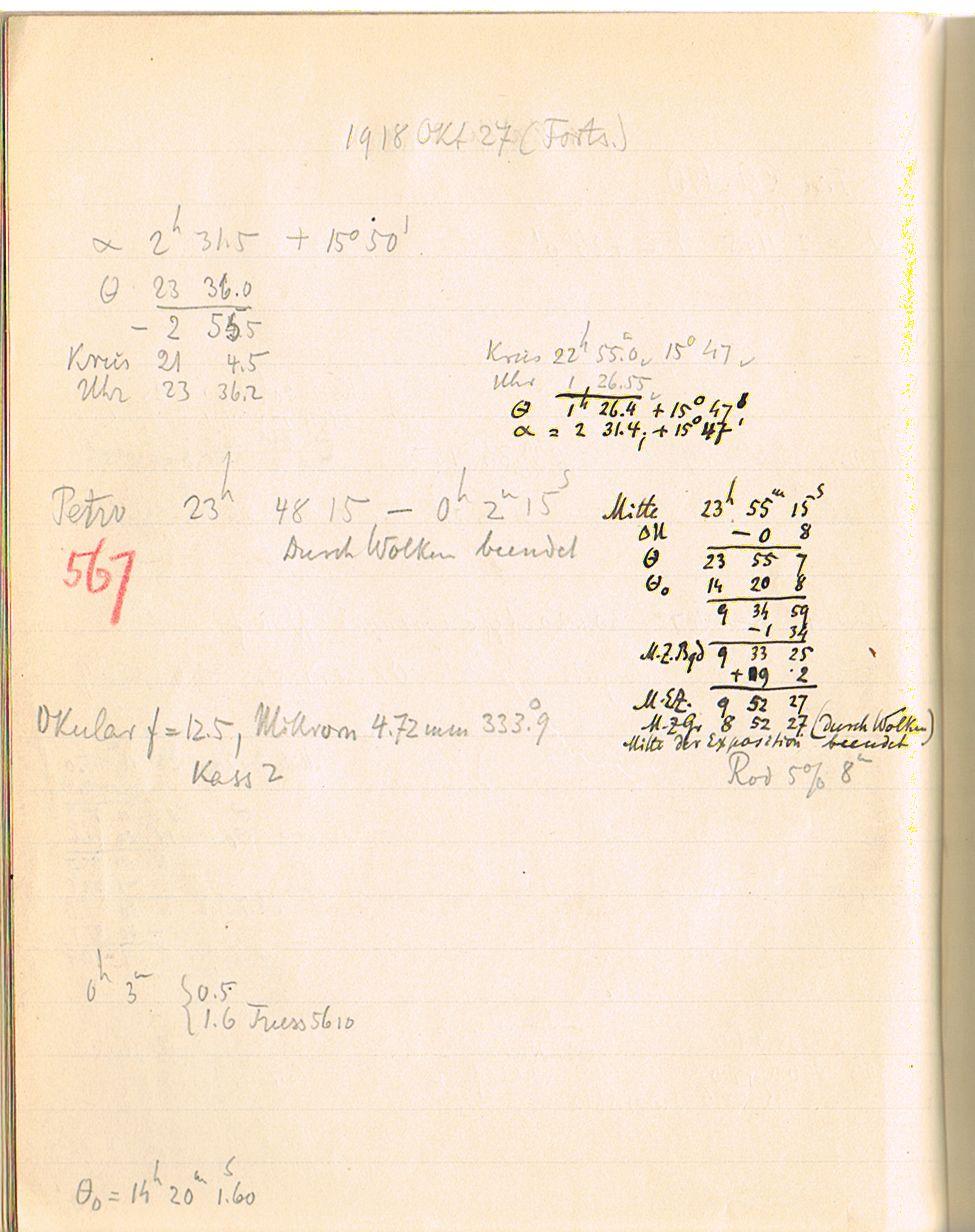 1918 Okt 27 (Forts.)
α 2h 31.5 + 15° 50'
θ 23 36.0
- 2 55.5
Kreis 21 4.5
Uhr 23 36.2
Kreis 22h 55.m0 15° 47
Uhr 1 26.55
θ 1h 26.4 + 15° 47'
α = 2 31.4; + 15° 47'
Petro 23h 48 15 — 0h 2m 15s
Durch Wolken beendet
567
Mitte 23h 55m 15s
ΔU - 0 8
θ 23 55 7
θ₀ 14 20 8
9 34 59
-1 34
M.Z.Bgd 9 33 25
+ 19 2
M.E.Z. 9 52 27
M.Z.Gr 8 52 27 (Durch Wolken
Mitte der Exposition beendet)
Okular f = 12.5, Mikrom 4.72 mm 333.°9
Kass 2
Rod 5% 8m
0h 3m { 0.5
{ 1.6 Fuess 5610
θ₀ = 14h 20m 1.s60